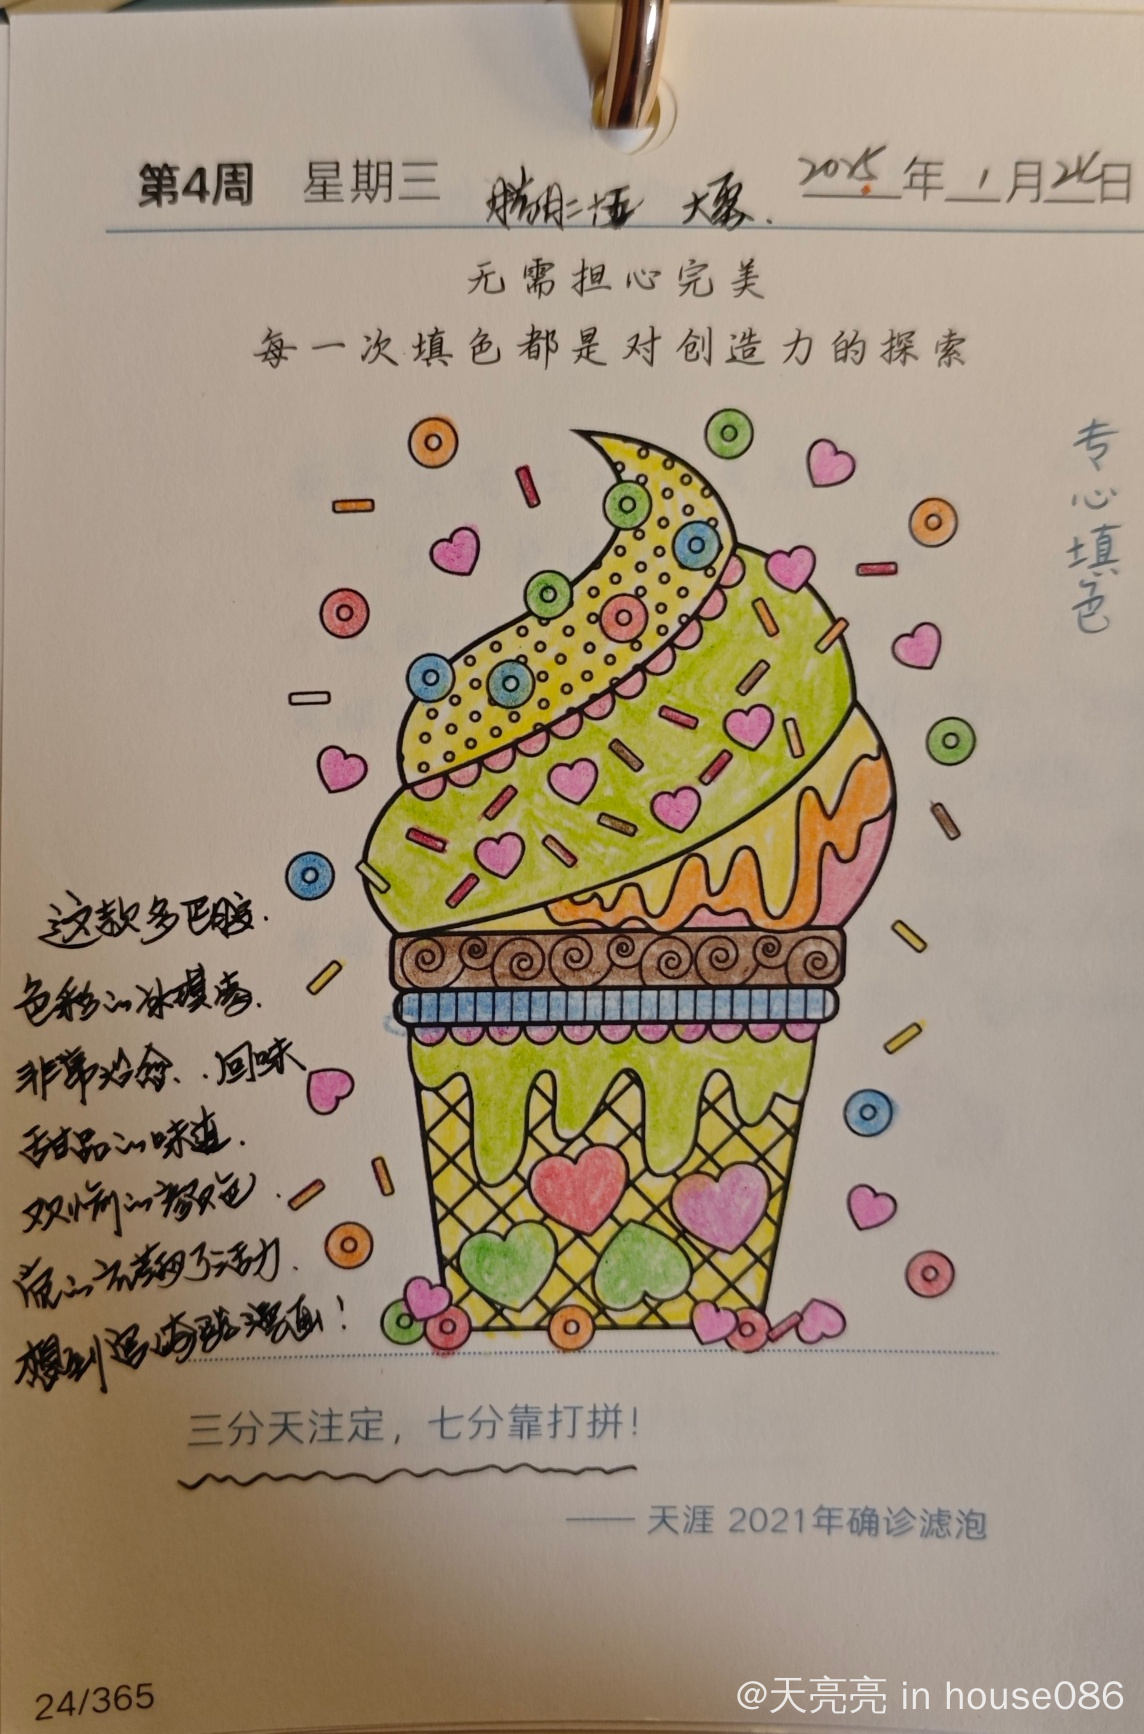 第4周 星期三 腊月二十五 大寒. 2025年1月24日
无需担心完美
每一次填色都是对创造力的探索
专心填色
这款多巴胺.
色彩的冰淇淋.
非常治愈..回味
甜品的味道.
欢愉的颜色.
真的充满了活力.
想到逗漫画!
三分天注定，七分靠打拼!
—— 天涯 2021年确诊滤泡
24/365
@天亮亮 in house086